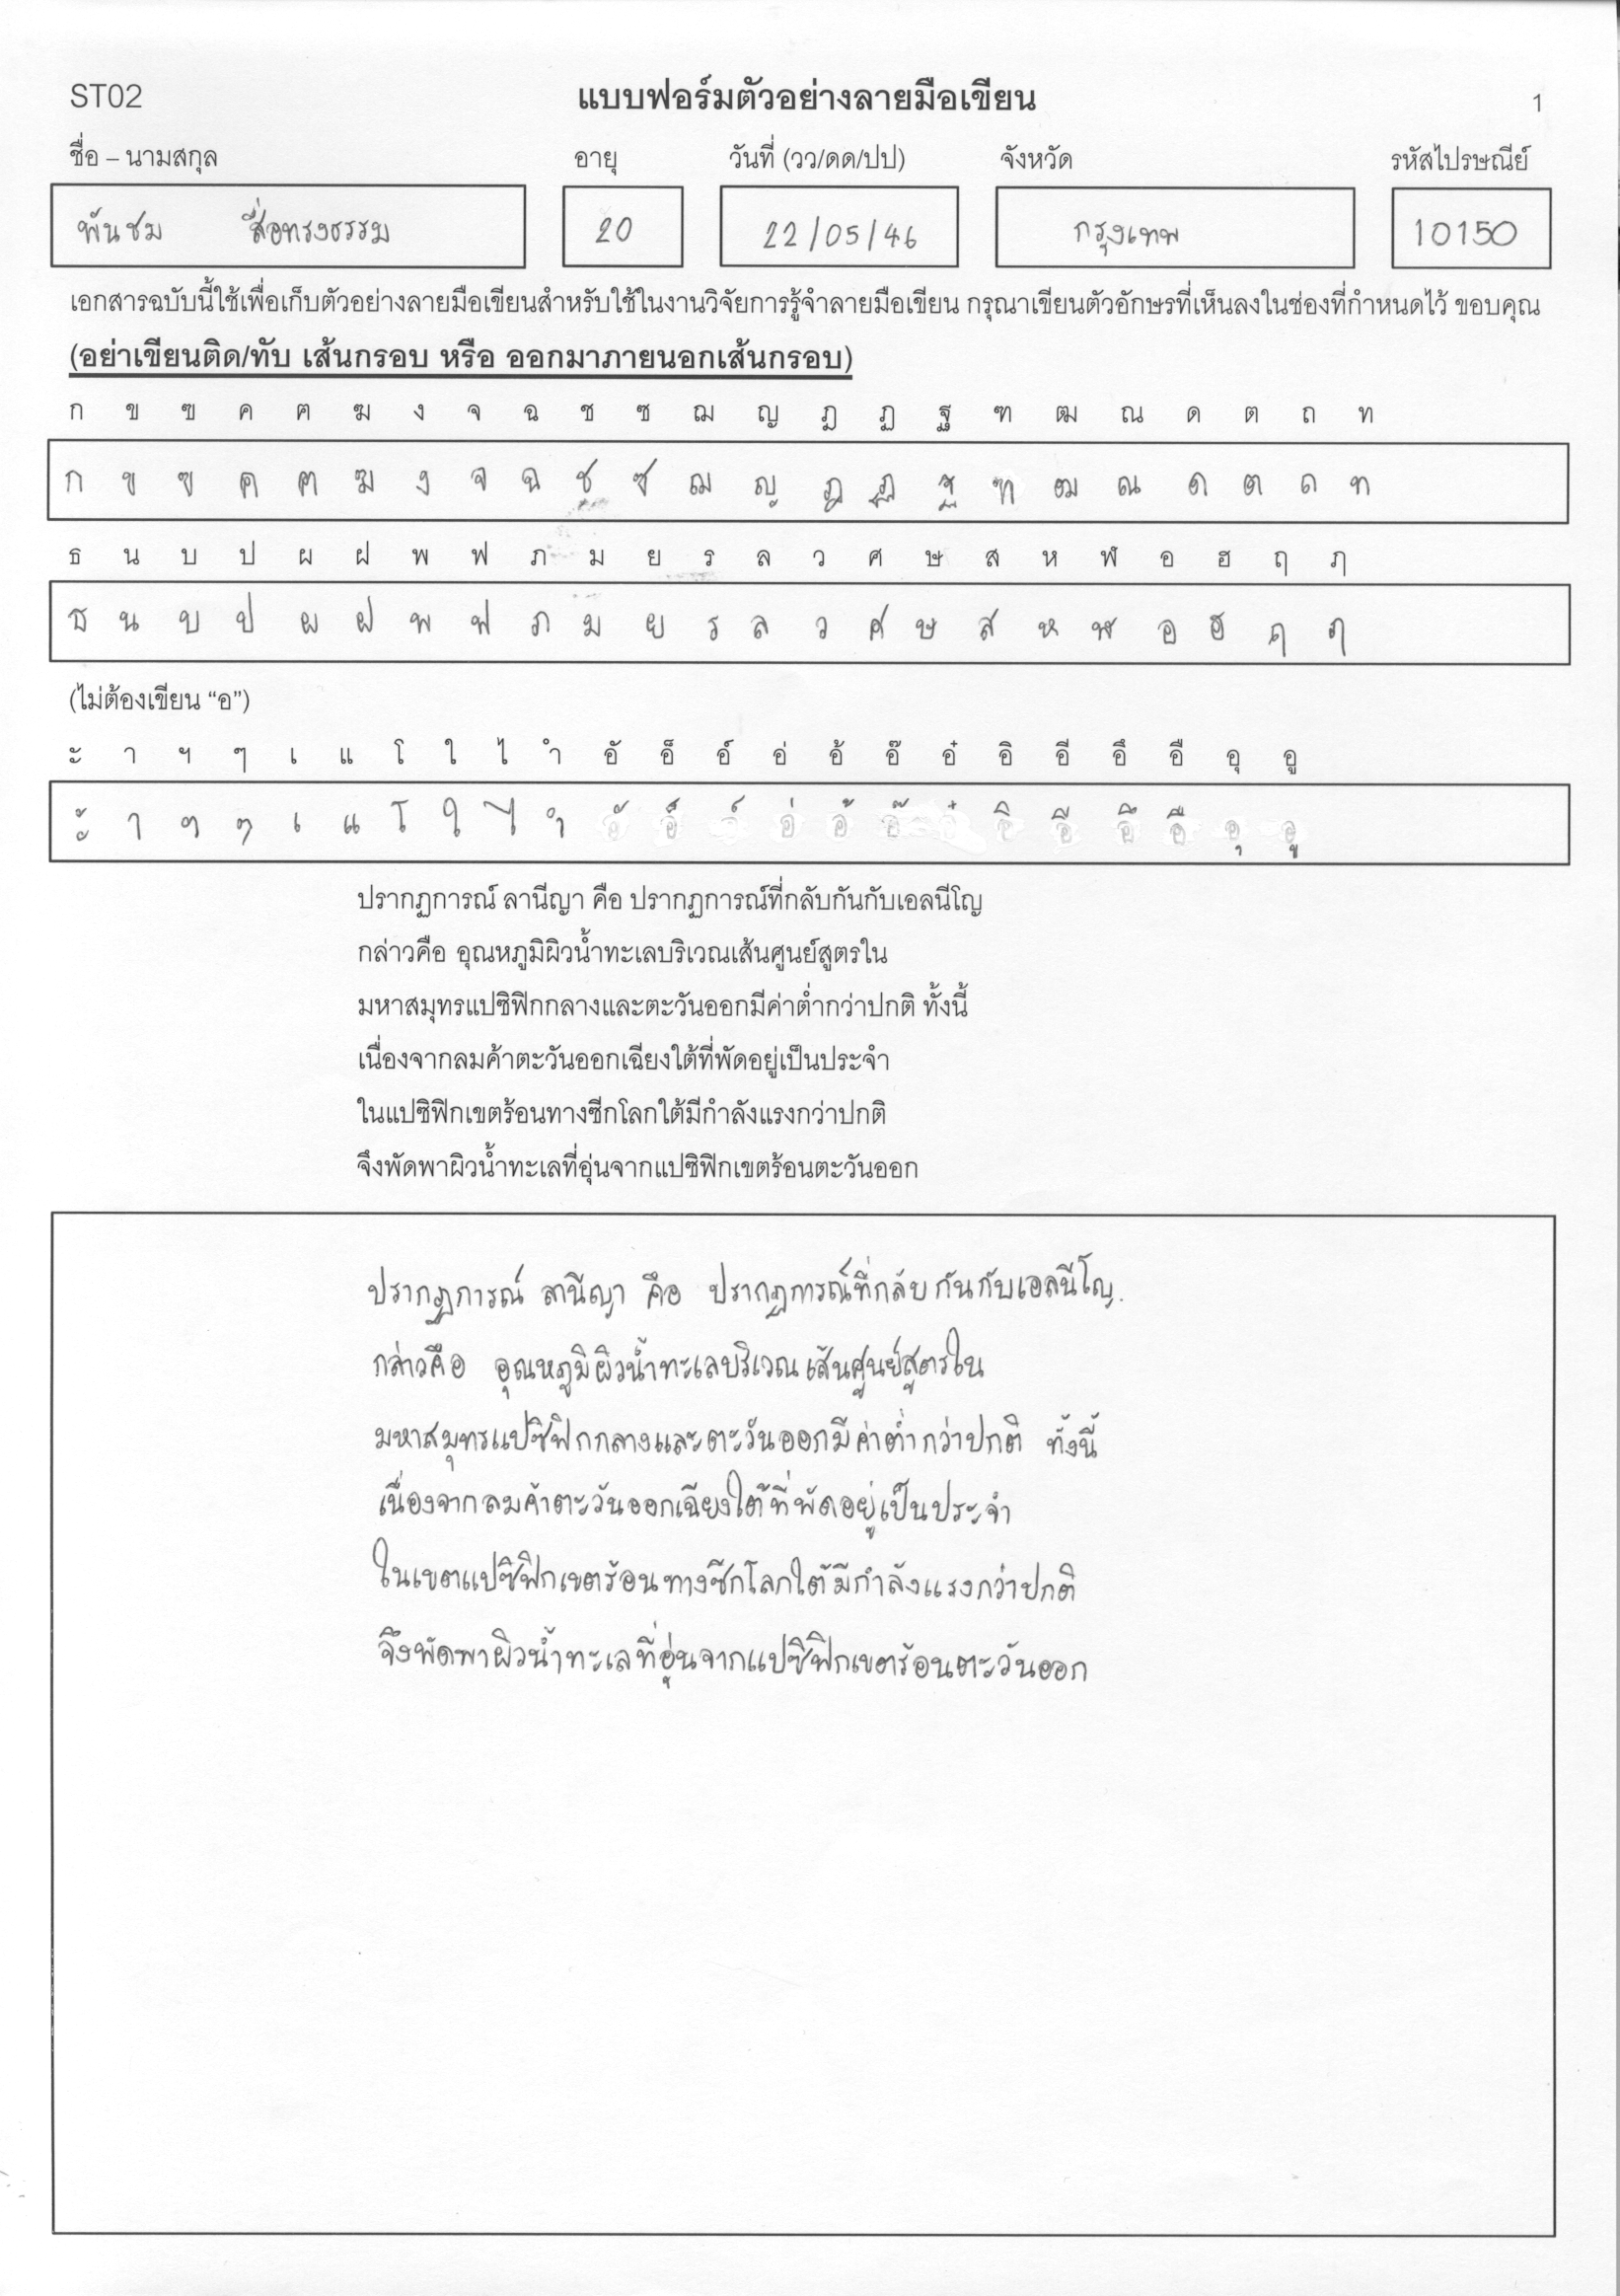 ST02 แบบฟอร์มตัวอย่างลายมือเขียน 1
ชื่อ – นามสกุล อายุ วันที่ (วว/ดด/ปป) จังหวัด รหัสไปรษณีย์
พันชม สื่อทรงธรรม 20 22/05/46 กรุงเทพ 10150
เอกสารฉบับนี้ใช้เพื่อเก็บตัวอย่างลายมือเขียนสำหรับใช้ในงานวิจัยการรู้จำลายมือเขียน กรุณาเขียนตัวอักษรที่เห็นลงในช่องที่กำหนดไว้ ขอบคุณ
(อย่าเขียนติด/ทับ เส้นกรอบ หรือ ออกมาภายนอกเส้นกรอบ)
ก ข ฃ ค ฅ ฆ ง จ ฉ ช ซ ฌ ญ ฎ ฏ ฐ ฑ ฒ ณ ด ต ถ ท
ก ข ฃ ค ฅ ฆ ง จ ฉ ช ซ ฌ ญ ฎ ฏ ฐ ฑ ฒ ณ ด ต ถ ท
ธ น บ ป ผ ฝ พ ฟ ภ ม ย ร ล ว ศ ษ ส ห ฬ อ ฮ ฤ ฦ
ธ น บ ป ผ ฝ พ ฟ ภ ม ย ร ล ว ศ ษ ส ห ฬ อ ฮ ฤ ฦ
(ไม่ต้องเขียน “อ”)
ะ า ฯ ๆ เ แ โ ใ ไ ำ อั อ็ อ์ อ่ อ้ อ๊ อ๋ อิ อี อึ อื อุ อู
ะ า ฯ ๆ เ แ โ ใ ไ ำ อั อ็ อ์ อ่ อ้ อ๊ อ๋ อิ อี อึ อื อุ อู
ปรากฏการณ์ ลานีญา คือ ปรากฏการณ์ที่กลับกันกับเอลนีโญ
กล่าวคือ อุณหภูมิผิวน้ำทะเลบริเวณเส้นศูนย์สูตรใน
มหาสมุทรแปซิฟิกกลางและตะวันออกมีค่าต่ำกว่าปกติ ทั้งนี้
เนื่องจากลมค้าตะวันออกเฉียงใต้ที่พัดอยู่เป็นประจำ
ในแปซิฟิกเขตร้อนทางซีกโลกใต้มีกำลังแรงกว่าปกติ
จึงพัดพาผิวน้ำทะเลที่อุ่นจากแปซิฟิกเขตร้อนตะวันออก
ปรากฏการณ์ ลานีญา คือ ปรากฏการณ์ที่กลับกันกับเอลนีโญ.
กล่าวคือ อุณหภูมิผิวน้ำทะเลบริเวณเส้นศูนย์สูตรใน
มหาสมุทรแปซิฟิกกลางและตะวันออกมีค่าต่ำกว่าปกติ ทั้งนี้
เนื่องจากลมค้าตะวันออกเฉียงใต้ที่พัดอยู่เป็นประจำ
ในเขตแปซิฟิกเขตร้อนทางซีกโลกใต้มีกำลังแรงกว่าปกติ
จึงพัดพาผิวน้ำทะเลที่อุ่นจากแปซิฟิกเขตร้อนตะวันออก